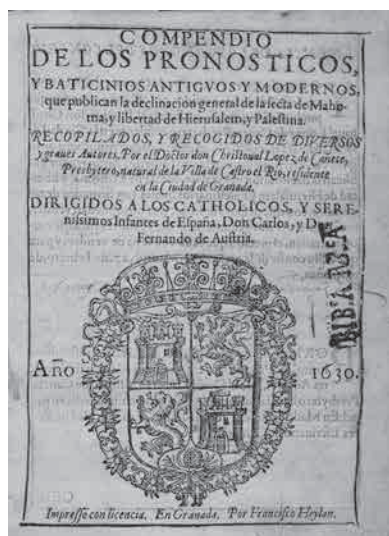 COMPENDIO
DE LOS PRONOSTICOS,
Y BATICINIOS ANTIGVOS Y MODERNOS,
que publican la declinacion general de la secta de Maho-
ma, y libertad de Hierusalem, y Palestina.
RECOPILADOS, Y RECOGIDOS DE DIVERSOS
y graues Autores, Por el Doctor don Christoual Lopez de Cañete,
Presbytero, natural de la Villa de Castro el Rio, residente
en la Ciudad de Granada.
DIRIGIDOS A LOS CATHOLICOS, Y SERE-
nissimos Infantes de España, Don Carlos, y D.
Fernando de Austria.
Año 1630.
Impresso con licencia, En Granada, Por Francisco Heylan.